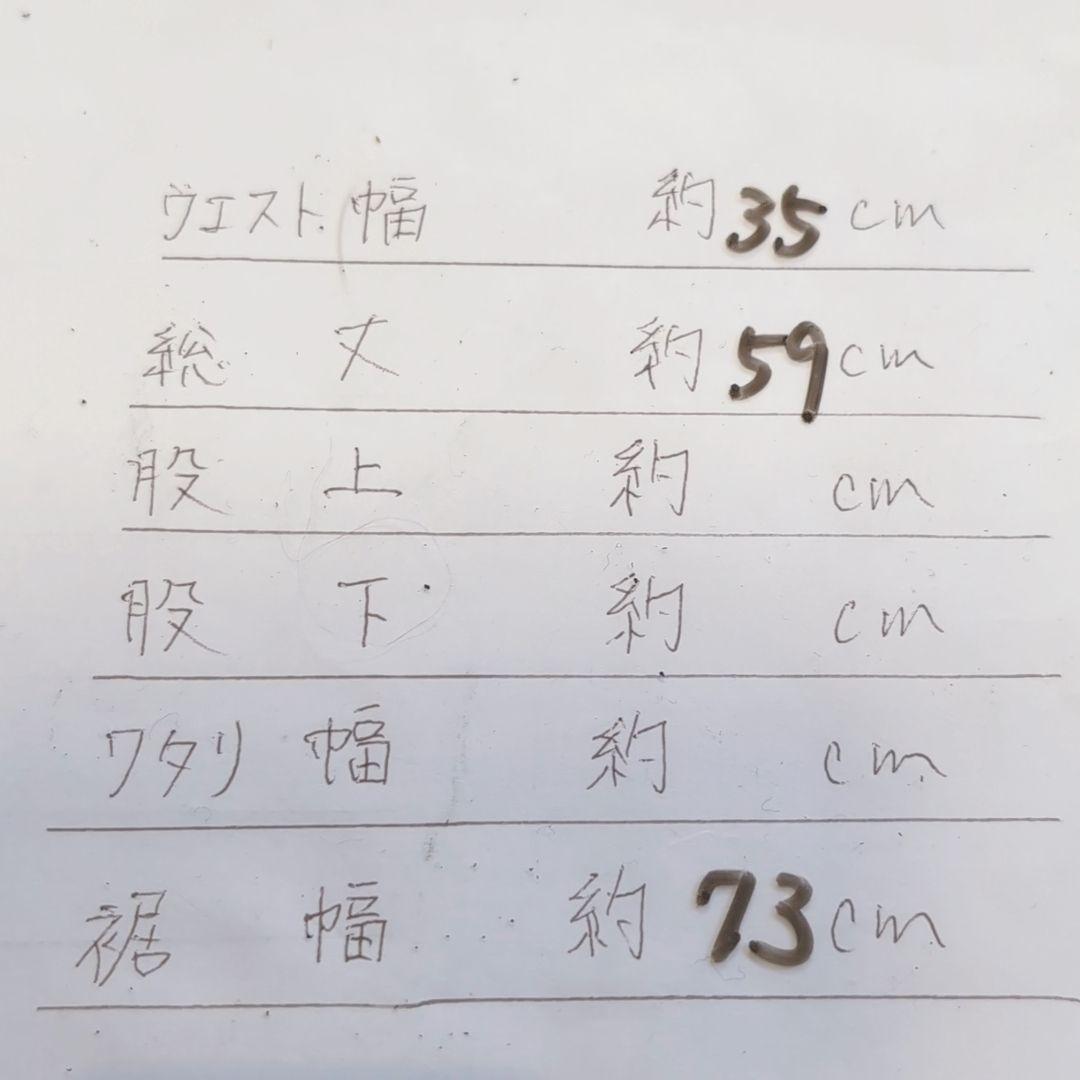 ヴエスト幅 約35cm
総丈 約59cm
股上 約 cm
股下 約 cm
ワタリ幅 約 cm
裾幅 約73cm